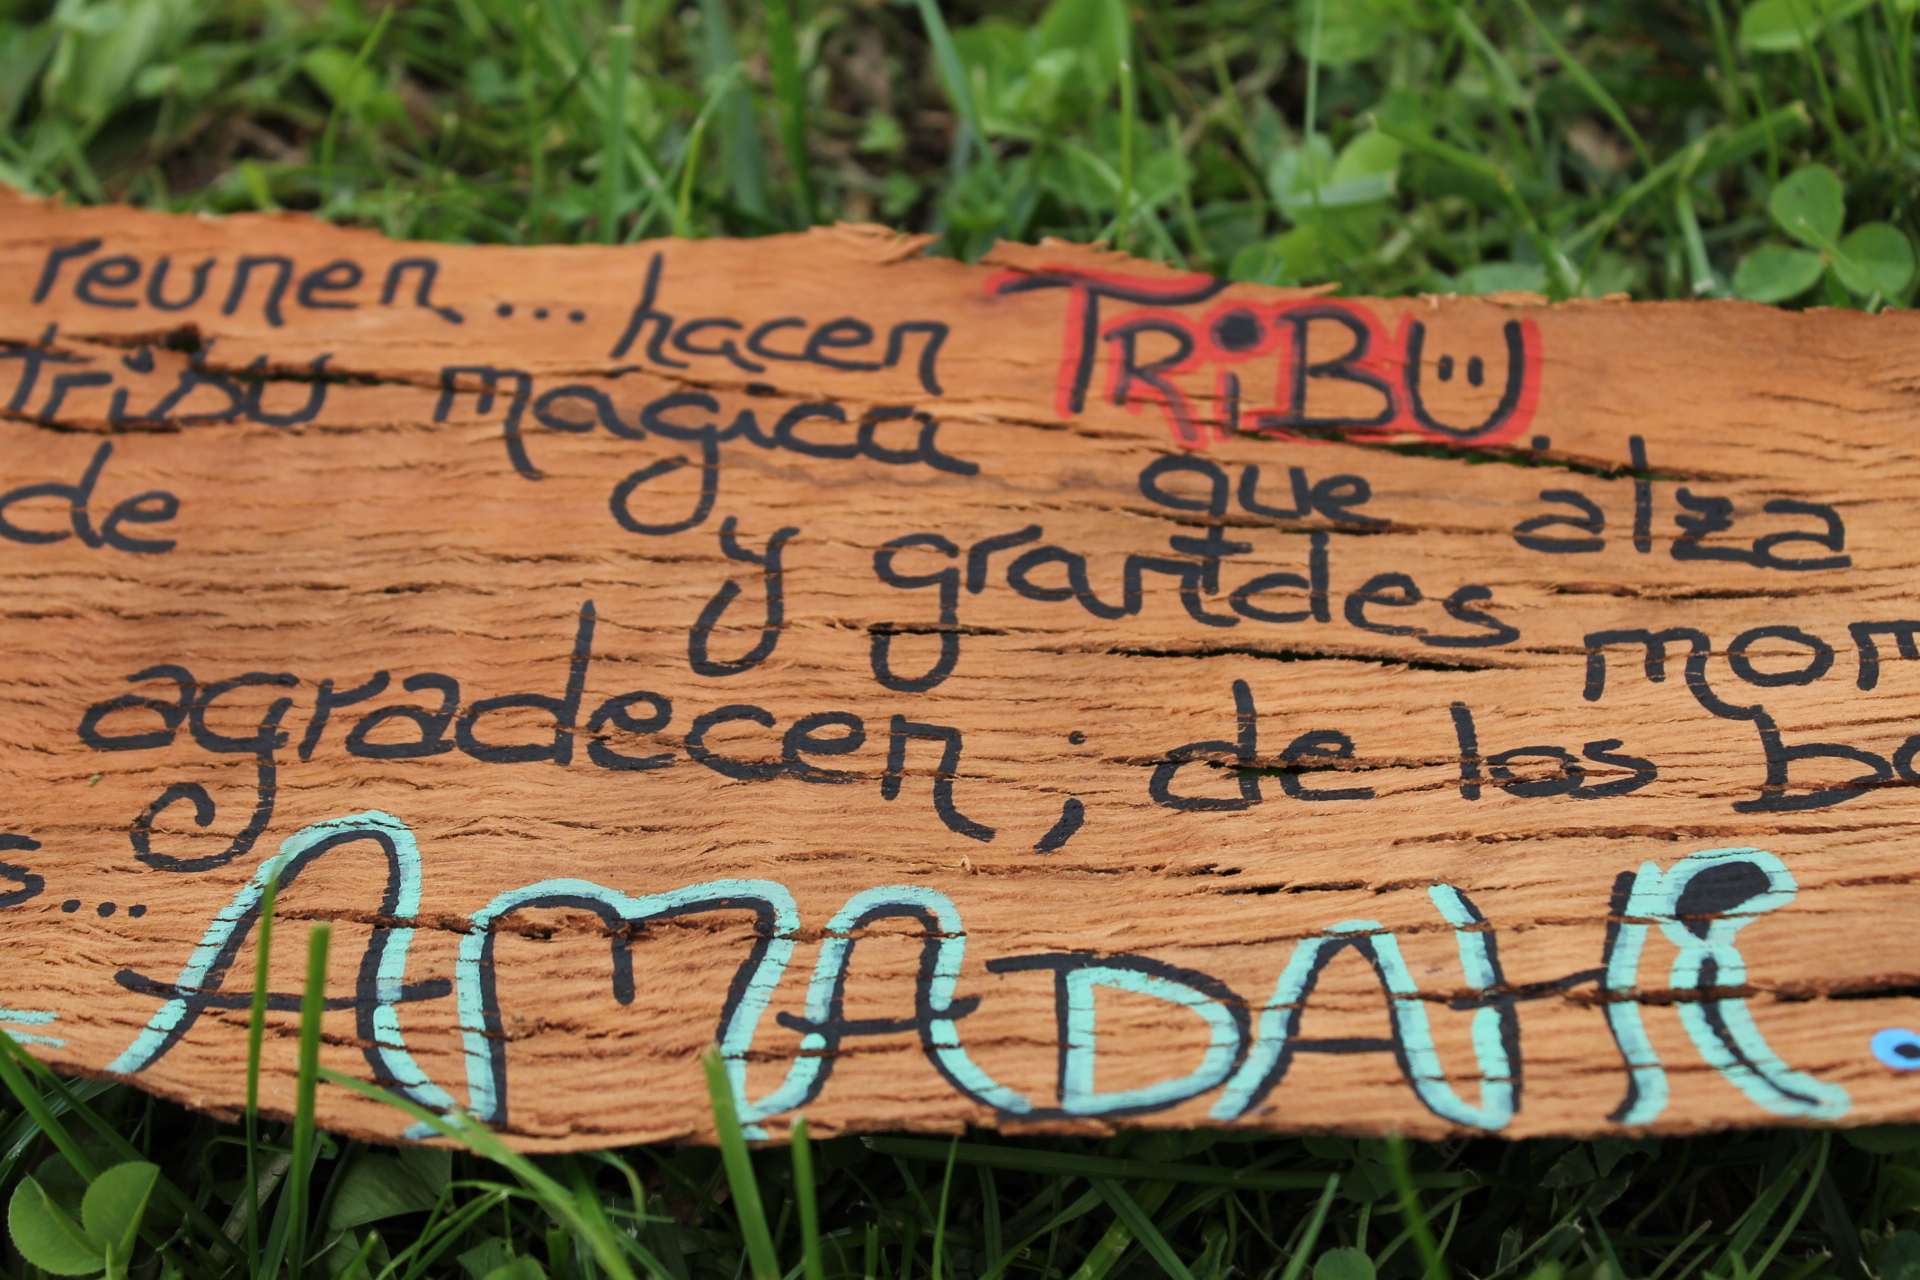 reunen... hacen TRiBU.
tribu mágica que alza
de y grandes mom
agradecen; de los bo
s... AMADAHI